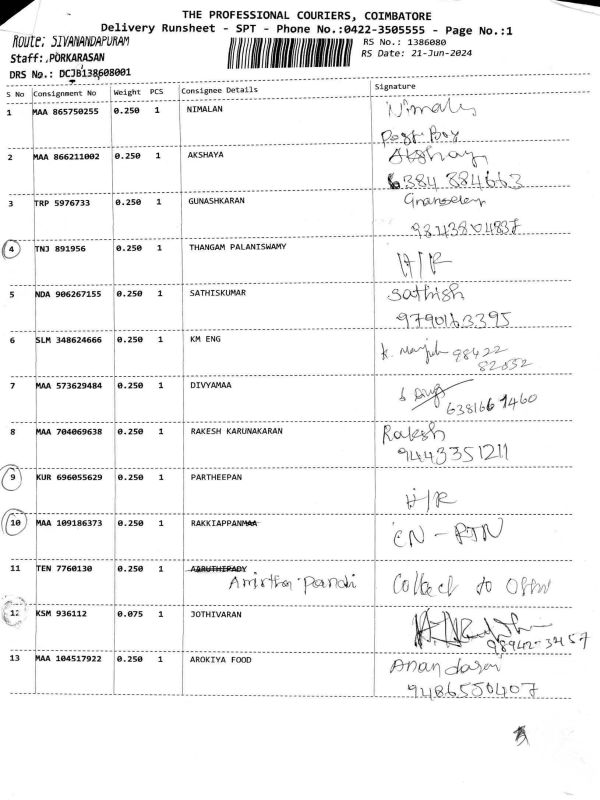 THE PROFESSIONAL COURIERS, COIMBATORE
Delivery Runsheet - SPT - Phone No.:0422-3505555 - Page No.:1
Route: SIVANANDAPURAM
RS No.: 1386080
Staff: PORKARASAN
RS Date: 21-Jun-2024
DRS No.: DCJB138608001
S No Consignment No Weight PCS Consignee Details Signature
1 MAA 865750255 0.250 1 NIMALAN Nimalan
Post Boy
2 MAA 866211002 0.250 1 AKSHAYA Akshay
6384 884663
3 TRP 5976733 0.250 1 GUNASHKARAN
9843804837
4 TNJ 891956 0.250 1 THANGAM PALANISWAMY H/R
5 NDA 906267155 0.250 1 SATHISKUMAR Sathish
9790163395
6 SLM 348624666 0.250 1 KM ENG 98422
82052
7 MAA 573629484 0.250 1 DIVYAMAA
6381661460
8 MAA 704069638 0.250 1 RAKESH KARUNAKARAN Rakesh
9443351211
9 KUR 696055629 0.250 1 PARTHEEPAN
H/R
10 MAA 109186373 0.250 1 RAKKIAPPANMAA CN - RTN
11 TEN 7760130 0.250 1
Amirtha pandi Collect to Office
12 KSM 936112 0.075 1 JOTHIVARAN
98942-3457
13 MAA 104517922 0.250 1 AROKIYA FOOD Anandaraj
9486550407